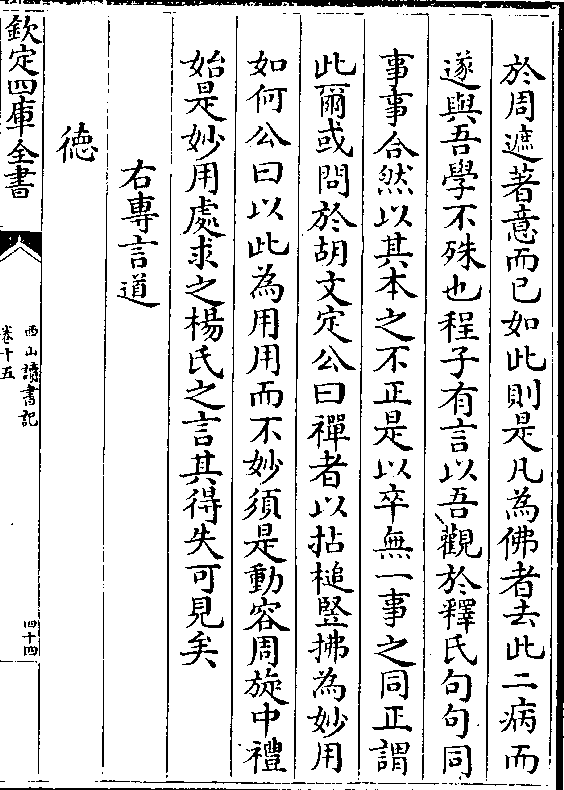 於周遮著意而已如此則是凡為佛者去此二病而
遂與吾學不殊也程子有言以吾觀於釋氏句句同
事事合然以其本之不正是以卒無一事之同正謂
此爾或問於胡文定公曰禪者以拈槌竪拂為妙用
如何公曰以此為用用而不妙須是動容周旋中禮
始是妙用處求之楊氏之言其得失可見矣
右專言道
德
欽定四庫全書
西山讀書記
卷十五
四十四